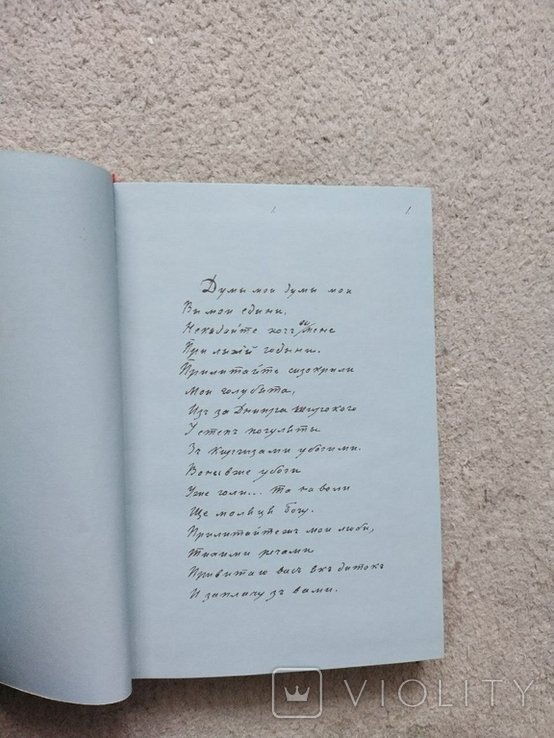 Думы мои думы мои
Вы мои едыни.
Некыдайте хочъ вы мене
При лыхій годыни.
Прилитайте сизокрили
Мои голубята,
Изъ за Днипра широкого
У степъ погуляты
Зъ Киргизами убогими.
Воны вже убоги
Уже голи... та на воли
Ще моляця богу.
Прилитайтежъ мои люби,
тихими речами
Привитаю васъ якъ дитокъ
И заплачу зъ вами.
VIOLITY